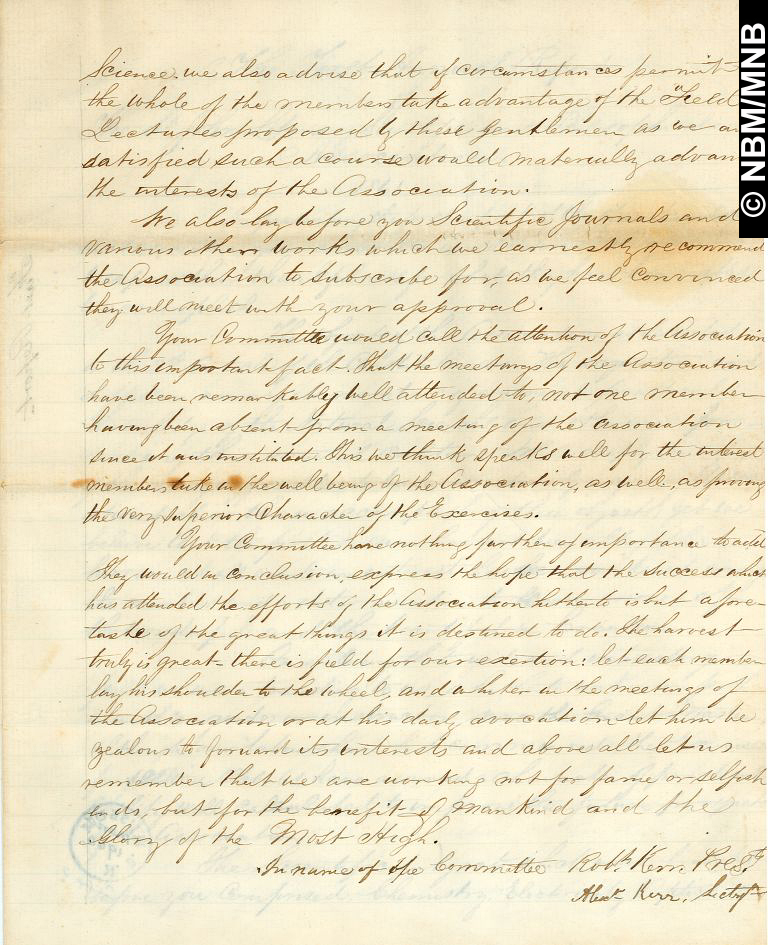 Science. we also advise that if circumstances permit
the whole of the members take advantage of the Field
Lectures proposed by these Gentlemen as we a
satisfied such a course would materially advan
the interests of the Association.
We also lay before you Scientific Journals and
various other works which we earnestly recommend
the Association to subscribe for, as we feel convinced
they will meet with your approval.
Your Committee would call the attention of the Association
to this important fact. That the meetings of the Association
have been remarkably well attended to, not one member
having been absent from a meeting of the association
since it was instituted. This we think speaks well for the interest
members take in the well being of the Association, as well, as proving
the very superior Character of the Exercises.
Your Committee have nothing further of importance to add
They would in conclusion, express the hope that the success which
has attended the efforts of the Association hitherto is but a fore-
taste of the great things it is destined to do. The harvest
truly is great – there is field for our exertion: let each member
lay his shoulder to the wheel, and whither in the meetings of
the Association or at his daily avocation let him be
zealous to forward its interests and above all let us
remember that we are working not for fame or selfish
ends, but for the benefit of Mankind and the
Glory of the Most High.
In name of the Committee Robt. Kerr. Prest.
Alexr. Kerr. Secty
© NBM/MNB